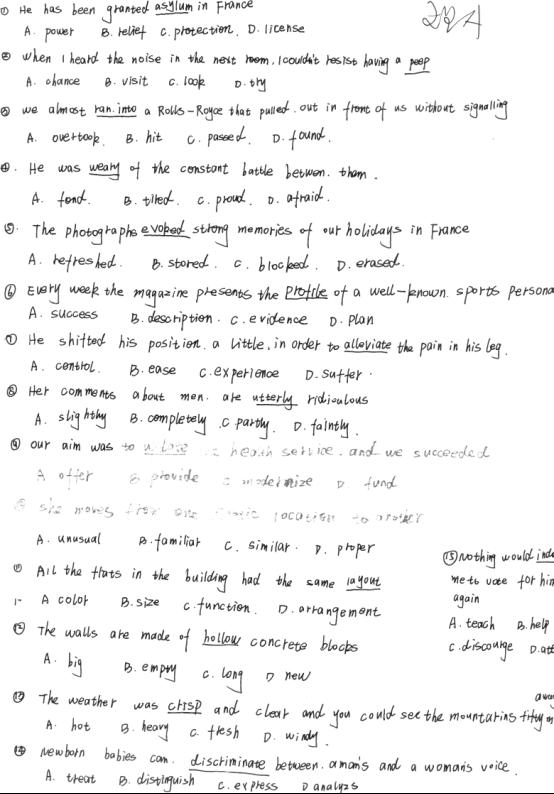 ① He has been granted asylum in France
A. power B. relief C. protection. D. license
② when I heard the noise in the next room, I couldn't resist having a peep
A. chance B. visit C. look D. try
③ we almost ran into a Rolls-Royce that pulled out in front of us without signalling
A. overtook. B. hit C. passed. D. found.
④. He was weary of the constant battle between. them.
A. fond. B. tired. C. proud. D. afraid.
⑤. The photographs evoked strong memories of our holidays in France
A. refreshed. B. stored. C. blocked. D. erased.
⑥ Every week the magazine presents the profile of a well-known sports persona
A. success B. description. C. evidence D. plan
⑦ He shifted his position a little, in order to alleviate the pain in his leg.
A. control. B. ease C. experience D. suffer.
⑧ Her comments about men are utterly ridiculous
A. slighthy B. completely .C partly. D. faintly.
⑨ our aim was to health service. and we succeeded
A offer B provide C modernize D fund
she moves from one location to another
A. unusual B. familiar C. similar. D. proper
⑪ All the flats in the building had the same layout
A color B. size C. function. D. arrangement
⑫ The walls are made of hollow concrete blocks
A. big B. empty C. long D new
⑬ The weather was crisp and clear and you could see the mountarins fifty
away
A. hot B. heavy C. fresh D. windy.
⑭ Newborn babies can. discriminate between. a man's and a woman's voice.
A. treat B. distinguish C. express D analyzs
⑮ Nothing would
me to vote for him
again
A. teach B. help
C. discourge D.